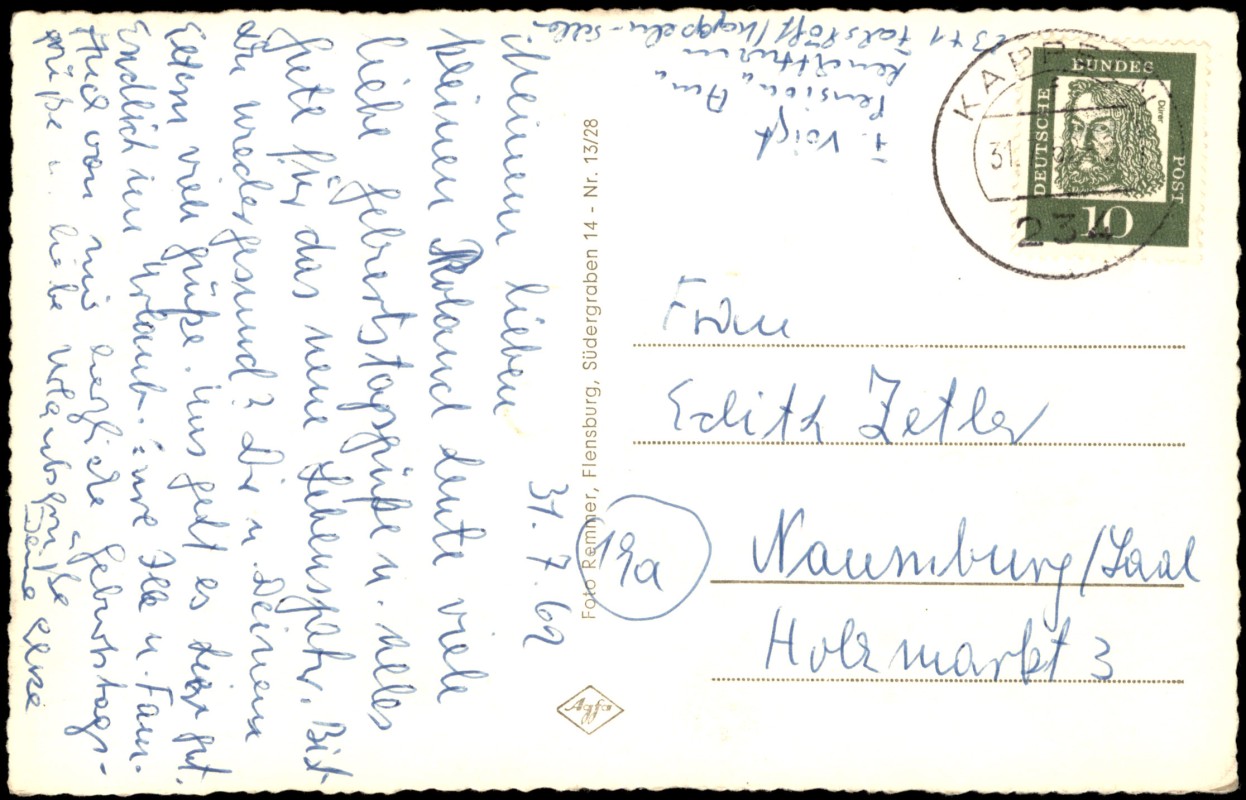 31.7.62
Meinem lieben
kleinen Roland heute viele
liebe Geburtstagsgrüße u. alles
Gute für das neue Lebensjahr. Bist
Du wieder gesund? Dir u. Deinen
Eltern viele Grüße. Uns geht es sehr gut.
Endlich im Urlaub. Eure Ilse u. Fam.
Auch von mir herzliche Geburtstags-
grüße u. liebe Urlaubsgrüße
Deine
F. Voigt
Pension
2341 Falshöft/Kappeln-
Foto Remmer, Flensburg, Südergraben 14 - Nr. 13/28
Agfa
KAPPELN
31
234
DEUTSCHE BUNDES POST
Dürer
10
Frau
Edith Zetler
19a
Naumburg/Saal
Holzmarkt 3